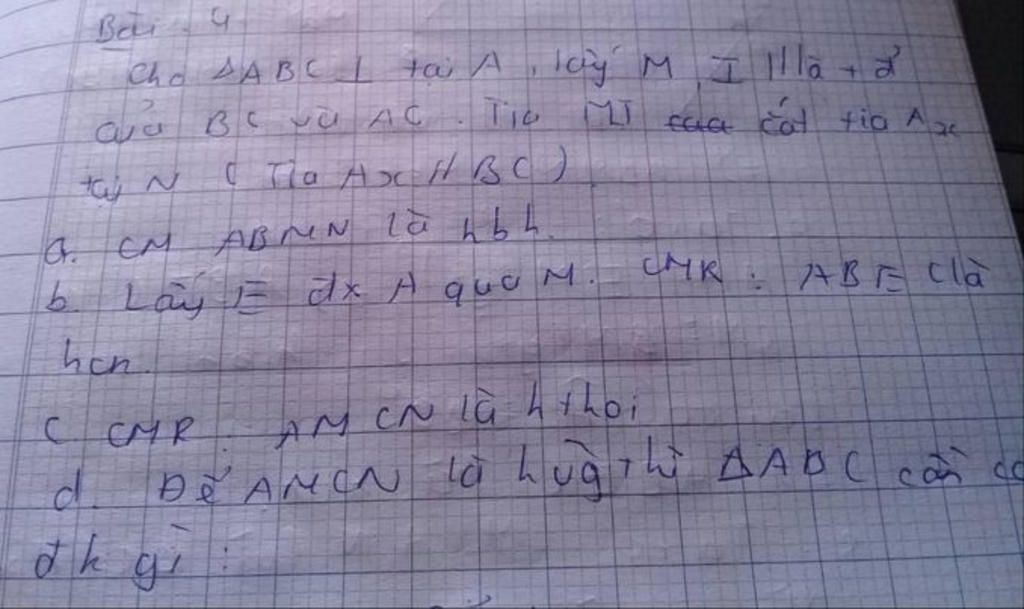 Bài 4
Cho ΔABC ⊥ tại A, lấy M, I lll là t đ'
của BC và AC. Tia MI cắt tia Ax
tại N (Tia Ax // BC)
a. CM ABMN là hbh.
b. Lấy E đx A qua M. CMR: ABEC là
hcn.
c. CMR: AMCN là h thoi
d. Để AMCN là h vg thì ΔABC cần có
đk gì: